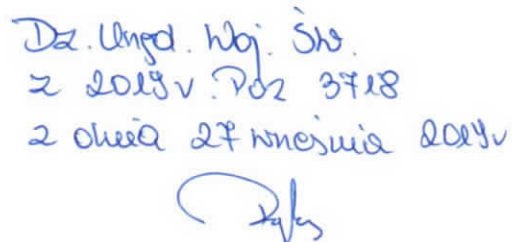 Dz. Urzęd. Woj. Św.
z 2019 r. Poz 3718
z dnia 27 września 2019 r